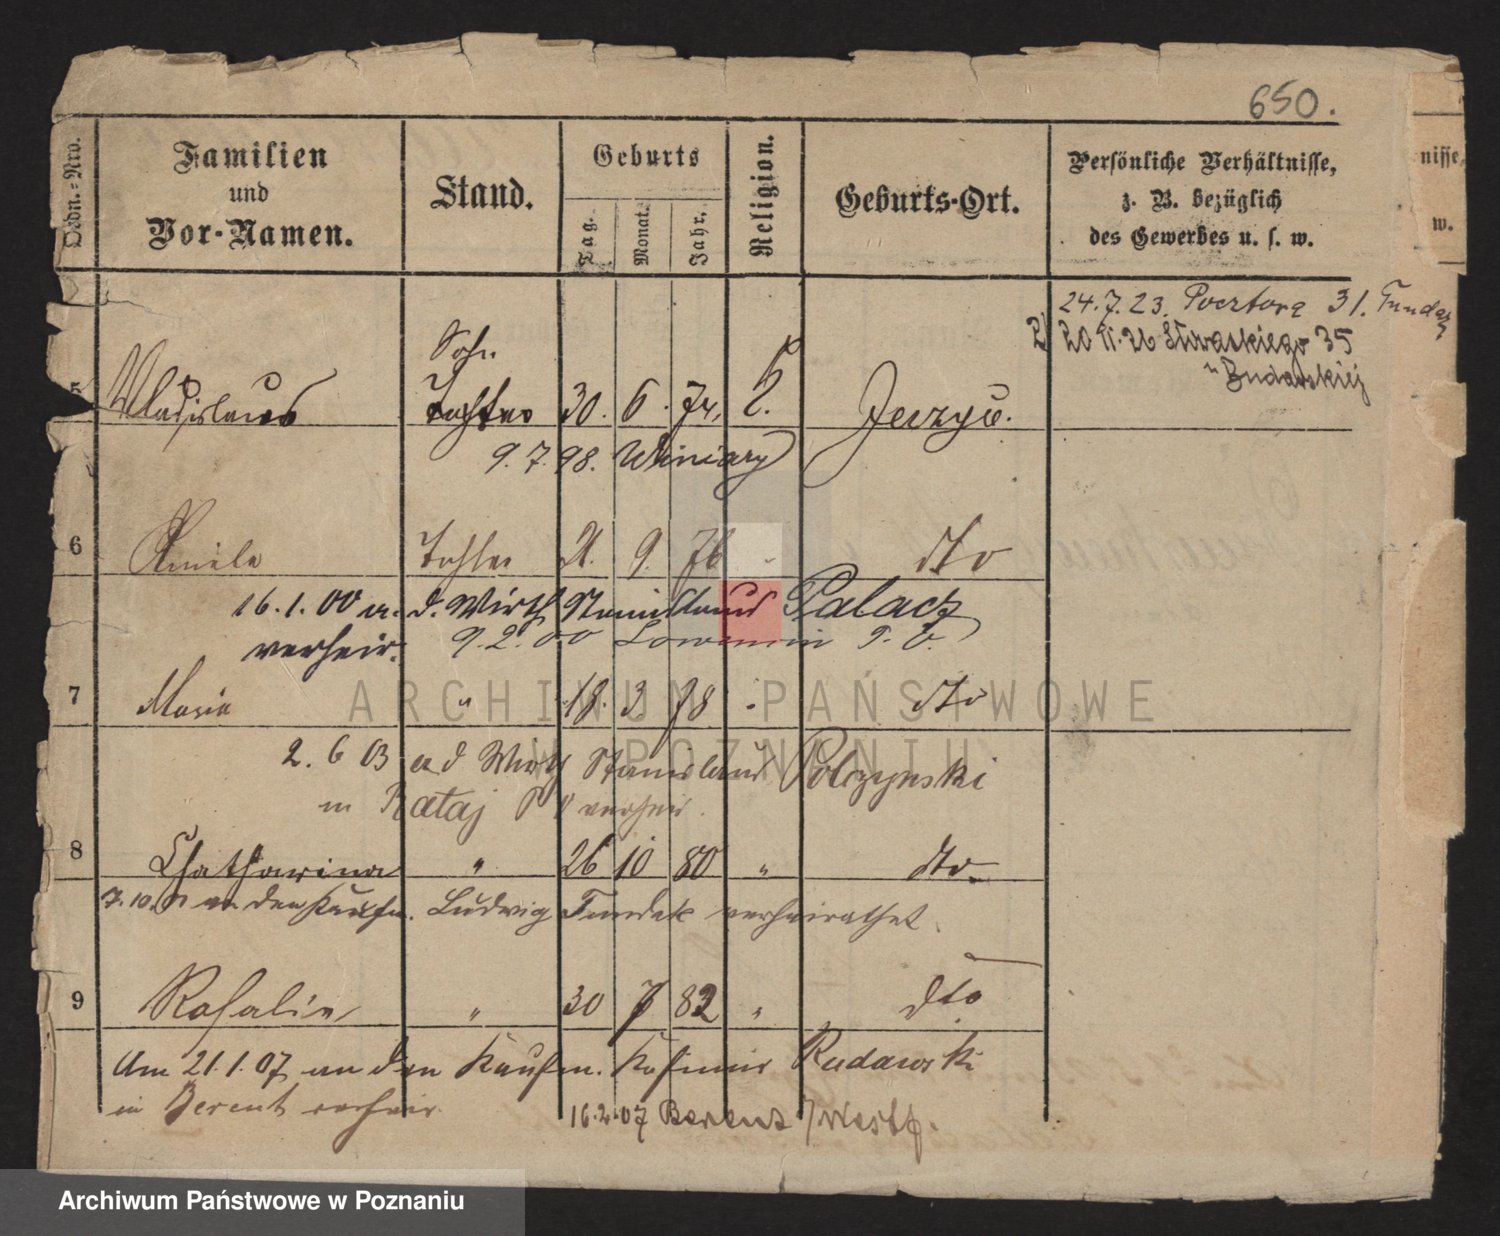 650.
Ordn.-Nro.
Familien
und
Vor-Namen.
Stand.
Geburts
Tag.
Monat.
Jahr.
Religion.
Geburts-Ort.
Persönliche Verhältnisse,
z. B. bezüglich
des Gewerbes u. s. w.
nisse,
w.
24.7.23. Pocztowa 31. Tundak
2) 20 11.26 35
Sohn
5 Wladislaus Tochter 30. 6. 74. k. Jerzyce.
9.7.98. Winiary
6 Amile Tochter 21. 9. 76 dto
16.1.00 a. d. Wirth Stanislaus Palacz
verheir. 9.2.00
7 Maria " 18. 3. 78 " dto
2. 6 03 a d Wirth Stanislaus Polczynski
in Rataj verheir.
8 Chatharina " 26 10 80 " dto
7.10. an den Kaufm. Ludwig Tundak verheirathet.
9 Rosalie " 30 7 82 " dto
Am 21.1.07 an den Kaufm. Kasimir Rudawski
in Berent verheir.
16.2.07 Berent /Westp.
ARCHIWUM PAŃSTWOWE
W POZNANIU
Archiwum Państwowe w Poznaniu